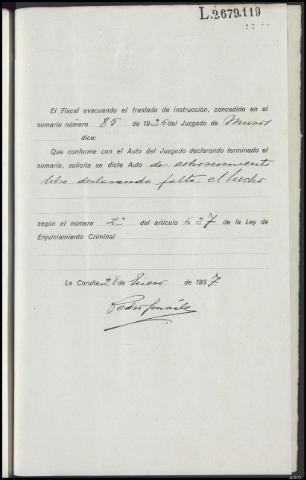 L.2.679.119
El Fiscal evacuando el traslado de instrucción, concedido en el
sumario número 85 de 1936 del Juzgado de Muros
dice:
Que conforme con el Auto del Juzgado declarando terminado el
sumario, solicita se dicte Auto de sobreseimiento
libre declarando falta el hecho
según el número 2º del artículo 637 de la Ley de
Enjuiciamiento Criminal
La Coruña 28 de Enero de 1937
Pedro